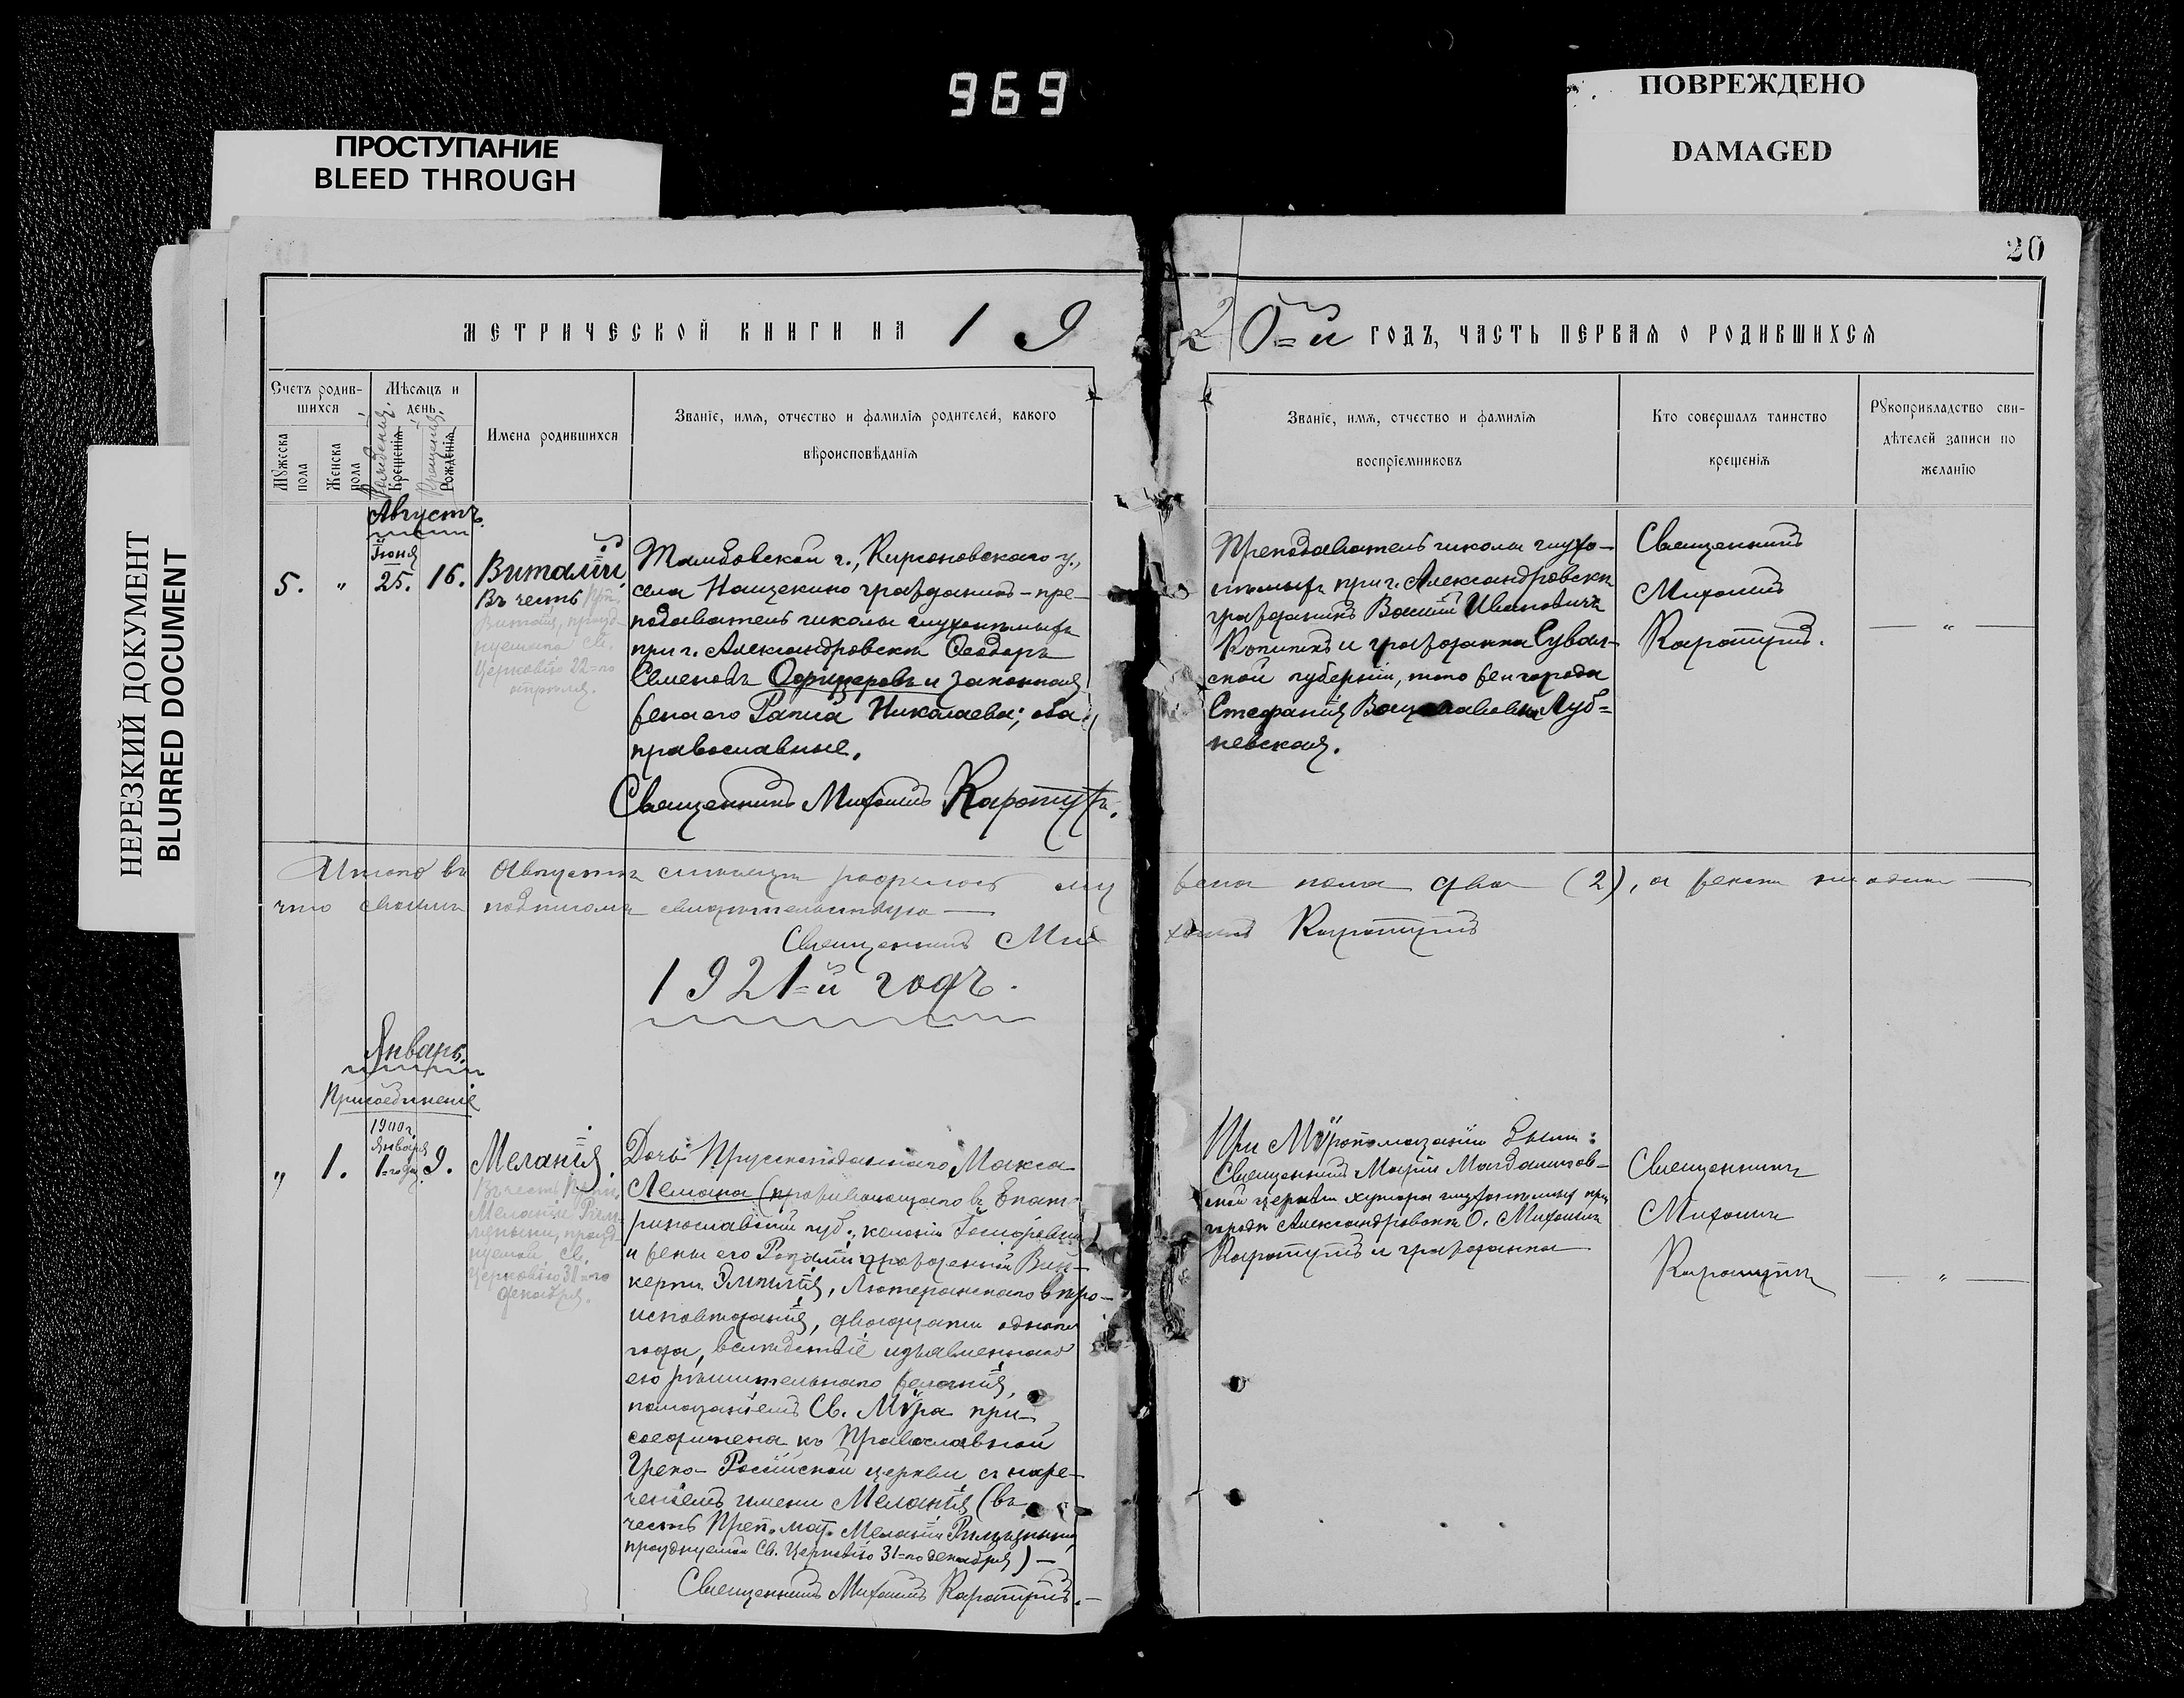 969
ПРОСТУПАНИЕ
BLEED THROUGH
ПОВРЕЖДЕНО
DAMAGED
НЕРЕЗКИЙ ДОКУМЕНТ
BLURRED DOCUMENT
20
МЕТРИЧЕСКОЙ КНИГИ НА 19
20=й ГОДЪ, ЧАСТЬ ПЕРВАЯ О РОДИВШИХСЯ
Счетъ родив-
шихся
Мужеска пола
Женска пола
Мѣсяцъ и
день
Рожденія.
Крещенія
Крещенія.
Рожденія
Имена родившихся
Званіе, имя, отчество и фамилія родителей, какого
вѣроисповѣданія
Званіе, имя, отчество и фамилія
воспріемниковъ
Кто совершалъ таинство
крещенія
Рукоприкладство сви-
дѣтелей записи по
желанію
Августъ.
Іюня
5. " 25. 16.
Виталій
Въ честь
Виталія, празд-
нуемаго Св.
Церковію 22=го
апрѣля.
Тамбовской г., Кирсановскаго у.,
села Нащекино гражданинъ - пре-
подаватель школы глухонѣмыхъ
при г. Александровскѣ Ѳеодоръ
Семеновъ Офицеровъ и законная
жена его Раиса Николаева; оба
православные.
Священникъ Михаилъ
Преподаватель школы глухо-
нѣмыхъ при г. Александровскѣ
гражданинъ Василій Ивановичъ
и гражданка Сувал-
ской губерніи, того же города
Стефанія Вацлавовна Луб=
невская.
Священникъ
Михаилъ
— " —
Итого въ Августѣ мѣсяцѣ родилось му
жеска пола два (2), а женска ни одного —
что своимъ подписомъ свидѣтельствую —
Священникъ Ми
хаилъ
1921=й годъ.
Январь.
Присоединеніе
1900г.
Января
" 1. 1=го 9.
Меланія.
Въ честь Преп.
Меланіи Рим-
ляныни, празд-
нуемой Св.
Церковію 31=го
декабря.
Дочь Прусскоподданнаго Макса
Лемана (проживающаго въ Екат-
ринославской губ., колоніи
и жены его Розаліи урожденной Вин-
керта Эмилія, Лютеранскаго вѣро-
исповѣданія, двадцати одного
года, вслѣдствіе изъявленнаго
ею рѣшительнаго желанія,
помазаніемъ Св. Мѵра при-
соединена къ Православной
Греко-Россійской церкви съ наре-
ченіемъ имени Меланія (въ
честь Преп. мат. Меланіи Римляныни,
празднуемой Св. Церковію 31=го декабря) —
Священникъ Михаилъ
При Мѵропомазаніи были:
Священникъ Маріи Магдалинов-
ской церкви хутора глухонѣмыхъ при
городѣ Александровскѣ О. Михаилъ
и гражданка
Священникъ
Михаилъ
— " —